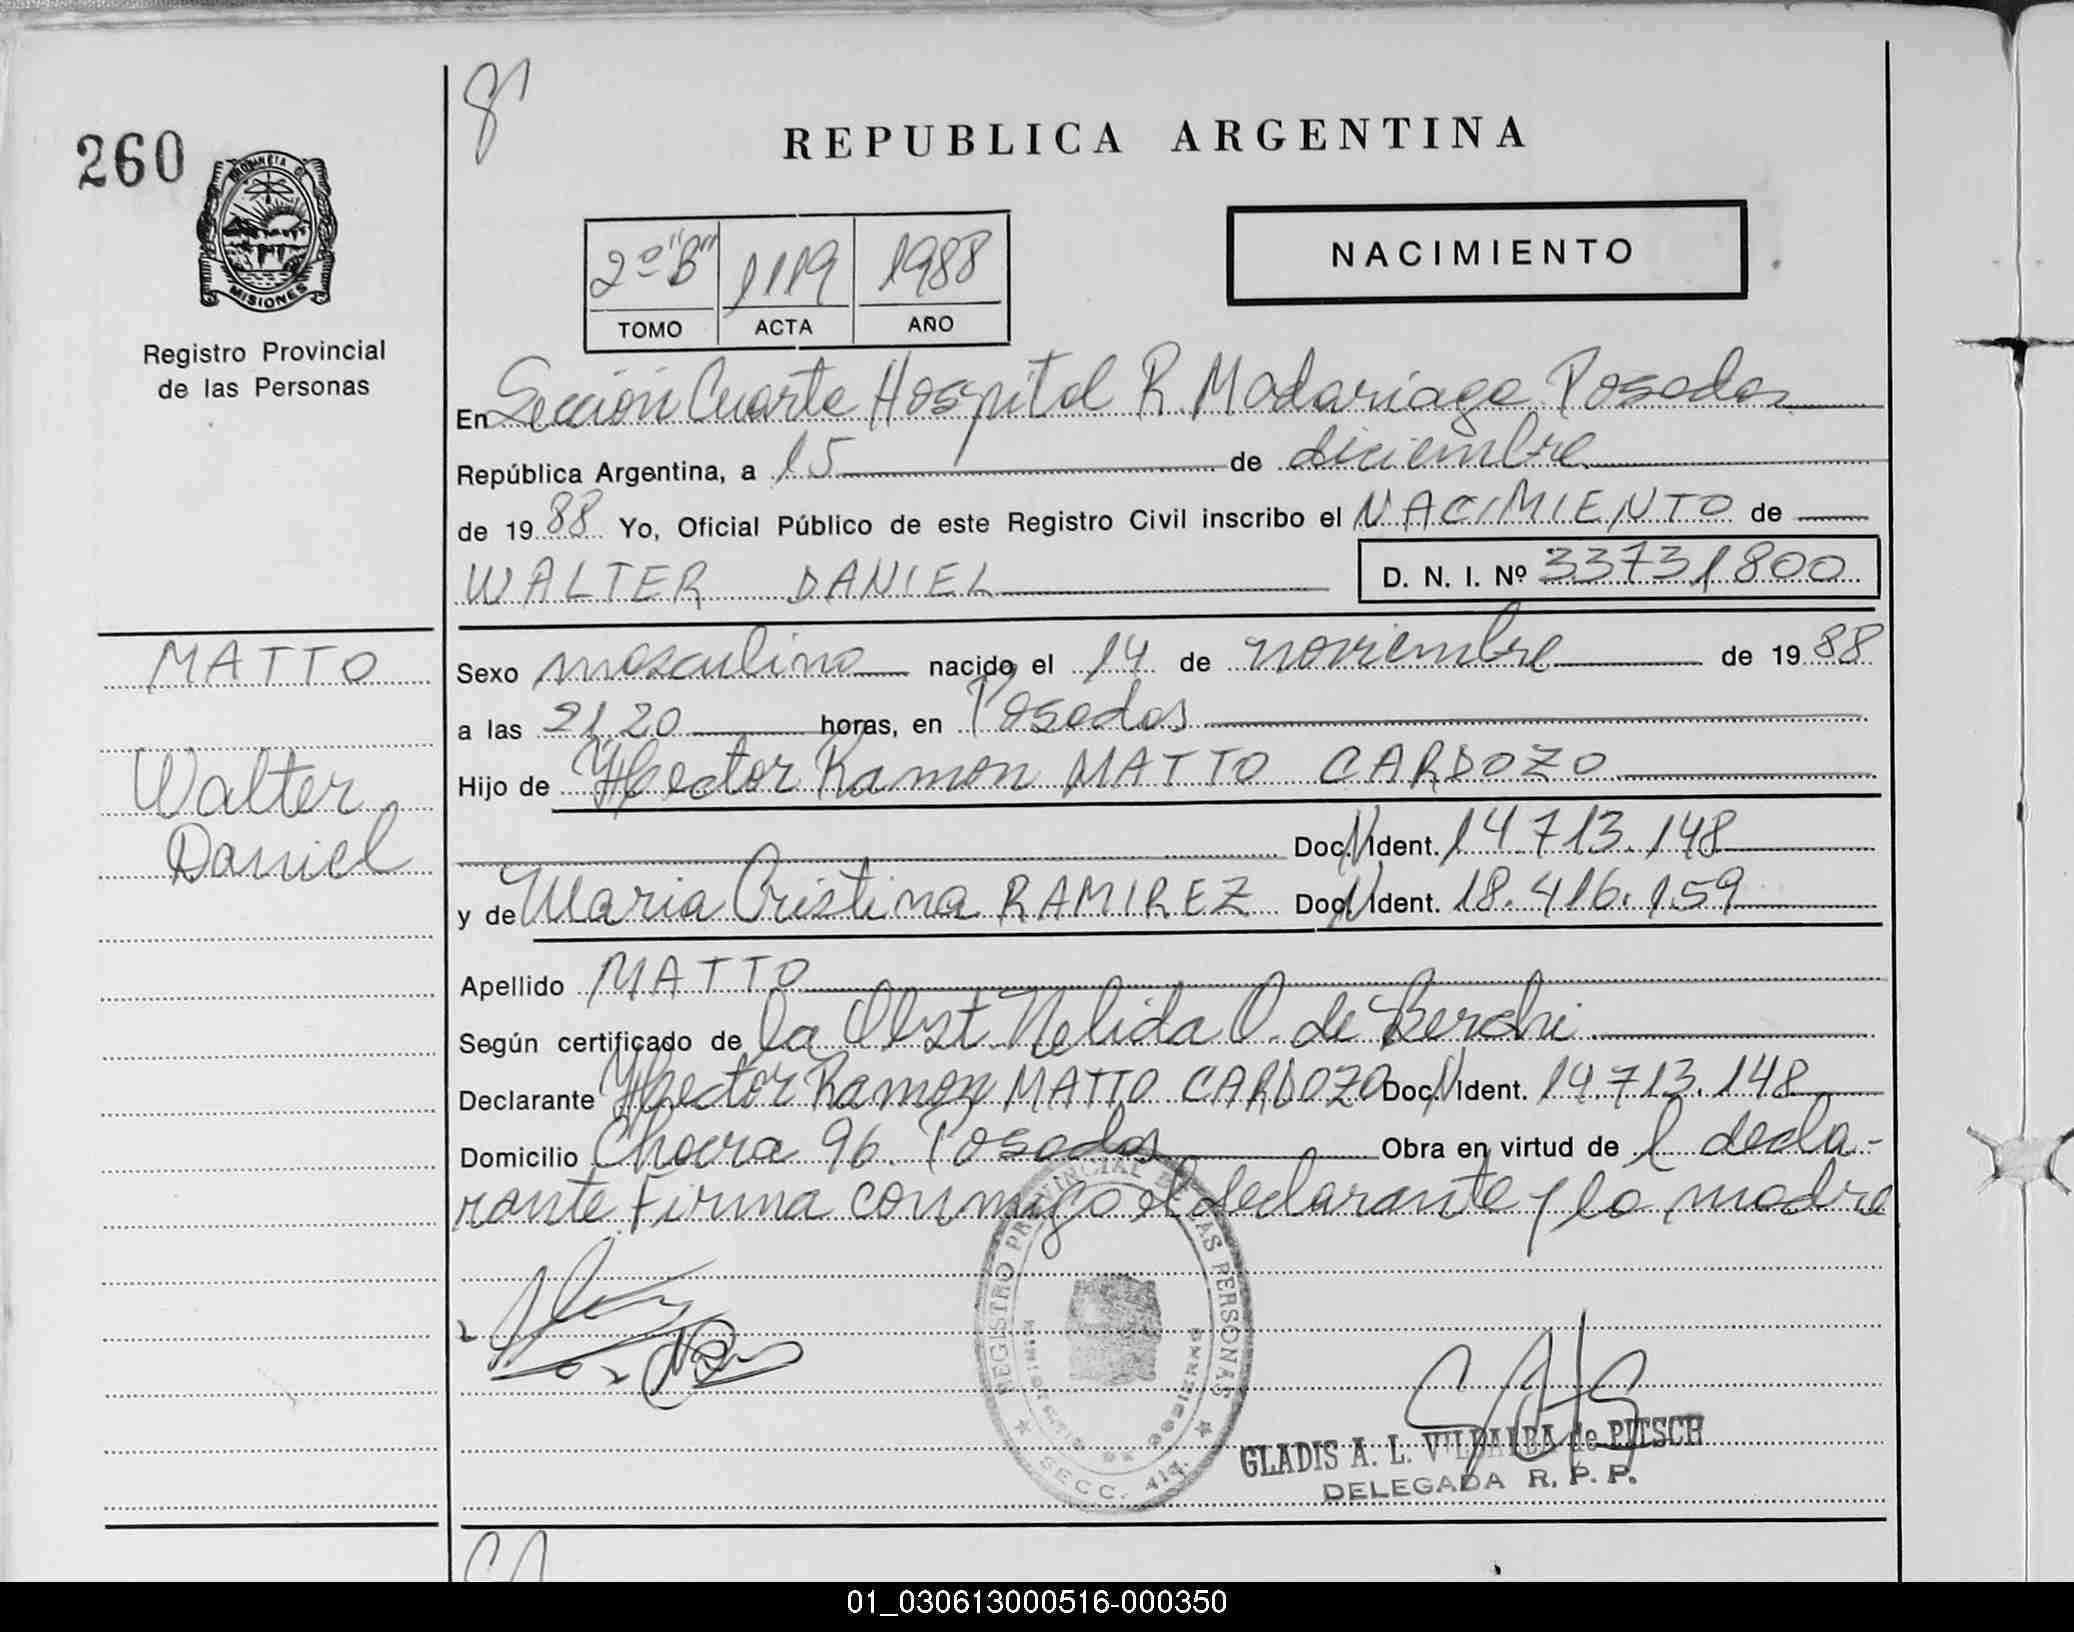 260
PROVINCIA DE
MISIONES
Registro Provincial
de las Personas
MATTO
Walter
Daniel
REPUBLICA ARGENTINA
2º "B" 1119 1988
TOMO ACTA AÑO
NACIMIENTO
En Sección Cuarta Hospital R. Madariaga Posadas
República Argentina, a 15 de diciembre
de 19 88 Yo, Oficial Público de este Registro Civil inscribo el NACIMIENTO de
WALTER DANIEL D. N. I. Nº 33731800
Sexo masculino nacido el 14 de noviembre de 19 88
a las 21.20 horas, en Posadas
Hijo de Hector Ramon MATTO CARDOZO
Doc. Ident. 14.713.148
y de Maria Cristina RAMIREZ Doc. Ident. 18.416.159
Apellido MATTO
Según certificado de la Obst. Nelida O. de Berchi
Declarante Hector Ramon MATTO CARDOZO Doc. Ident. 14.713.148
Domicilio 96. Posadas Obra en virtud de l decla-
rante Firma conmigo el declarante y la madre
REGISTRO PROVINCIAL DE LAS PERSONAS
MINISTERIO DE GOBIERNO
SECC. 4ta.
GLADIS A. L. VILLALBA de PITSCH
DELEGADA R. P. P.
01_030613000516-000350